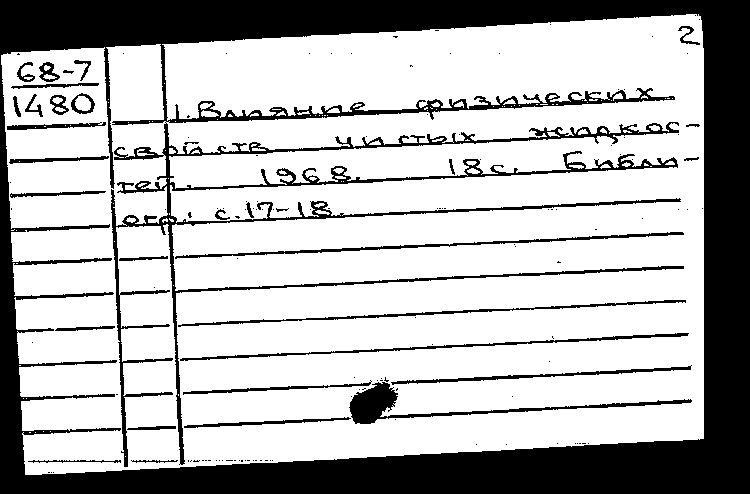 2
68-7
1480
1. Влияние физических
свойств чистых жидкос-
тей. 1968. 18с. Библи-
огр.: с.17-18.